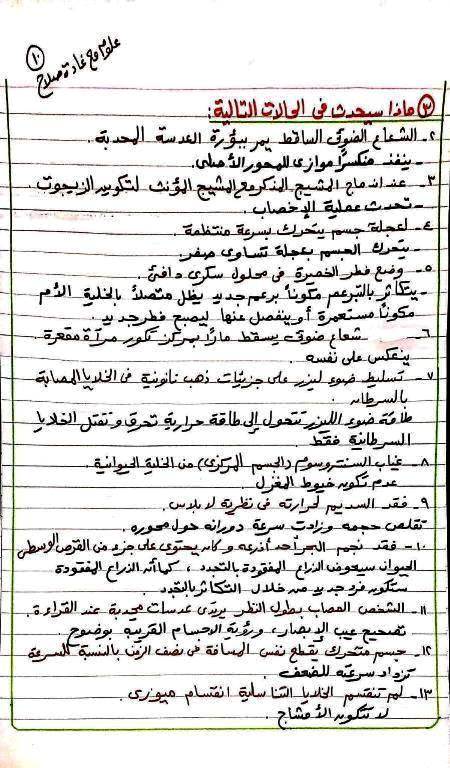 علوم مع غادة صلاح
١٠
٣ ماذا سيحدث في الحالات التالية:
٢- الشعاع الضوئي الساقط يمر ببؤرة العدسة المحدبة.
- ينفذ منكسراً موازي للمحور الأصلي.
٣- عند اندماج المشيج المذكر مع المشيج المؤنث لتكوين الزيجوت.
- تحدث عملية الإخصاب.
٤- لعجلة جسم يتحرك بسرعة منتظمة.
- يتحرك الجسم بعجلة تساوى صفر.
٥- وضع فطر الخميرة في محلول سكري دافئ.
- يتكاثر بالتبرعم مكوناً برعم جديد يظل متصلاً بالخلية الأم
مكوناً مستعمرة أو ينفصل عنها ليصبح فطر جديد.
٦- شعاع ضوئي يسقط ماراً بمركز تكور مرآة مقعرة.
ينعكس على نفسه.
٧- تسليط ضوء ليزر على جزيئات ذهب نانونية في الخلايا المصابة
بالسرطان.
طاقة ضوء الليزر تتحول إلى طاقة حرارية تحرق وتقتل الخلايا
السرطانية فقط.
٨- غياب السنتروسوم (الجسم المركزي) من الخلية الحيوانية.
عدم تكون خيوط المغزل.
٩- فقد السديم لحرارته في نظرية لابلاس.
تقلص حجمه وزادت سرعة دورانه حول محوره.
١٠- فقد نجم البحر أحد أذرعه وكان يحتوي على جزء من القرص الوسطي
الحيوان سيعوض الذراع المفقودة بالتجدد، كما أن الذراع المفقودة
ستكون فرد جديد من خلال التكاثر بالتجدد.
١١- الشخص المصاب بطول النظر يرتدى عدسات محدبة عند القراءة.
تصحيح عيب الإبصار، ورؤية الأجسام القريبة بوضوح
١٢- جسم متحرك يقطع نفس المسافة في نصف الزمن بالنسبة للسرعة
تزداد سرعته للضعف.
١٣- لم تنقسم الخلايا التناسلية انقسام ميوزى.
لا تتكون الأمشاج.